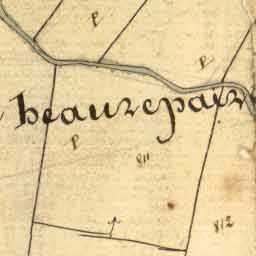 P
P
beaurepair
P
811
812